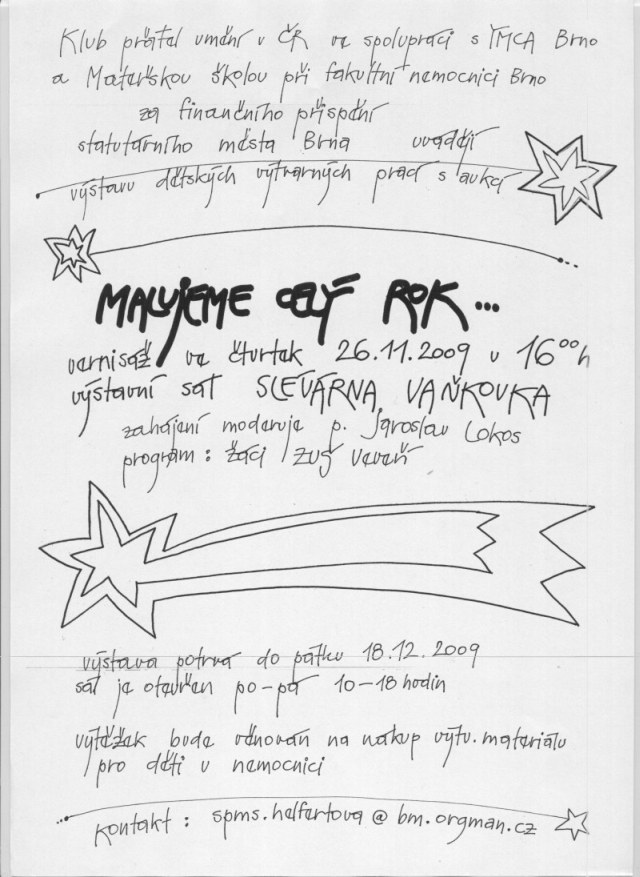 Klub přátel umění v ČR ve spolupráci s YMCA Brno
a Mateřskou školou při fakultní nemocnici Brno
za finančního přispění
statutárního města Brna uvádějí
výstavu dětských výtvarných prací s aukcí
MALUJEME CELÝ ROK...
vernisáž ve čtvrtek 26.11.2009 v 16ºº h
výstavní sál SLÉVÁRNA VAŇKOVKA
zahájení moderuje p. Jaroslav Lokos
program : žáci ZUŠ Veveří
výstava potrvá do pátku 18.12.2009
sál je otevřen po-pá 10-18 hodin
výtěžek bude věnován na nákup výtv. materiálu
pro děti v nemocnici
kontakt : spms.helfertova@bm.orgman.cz